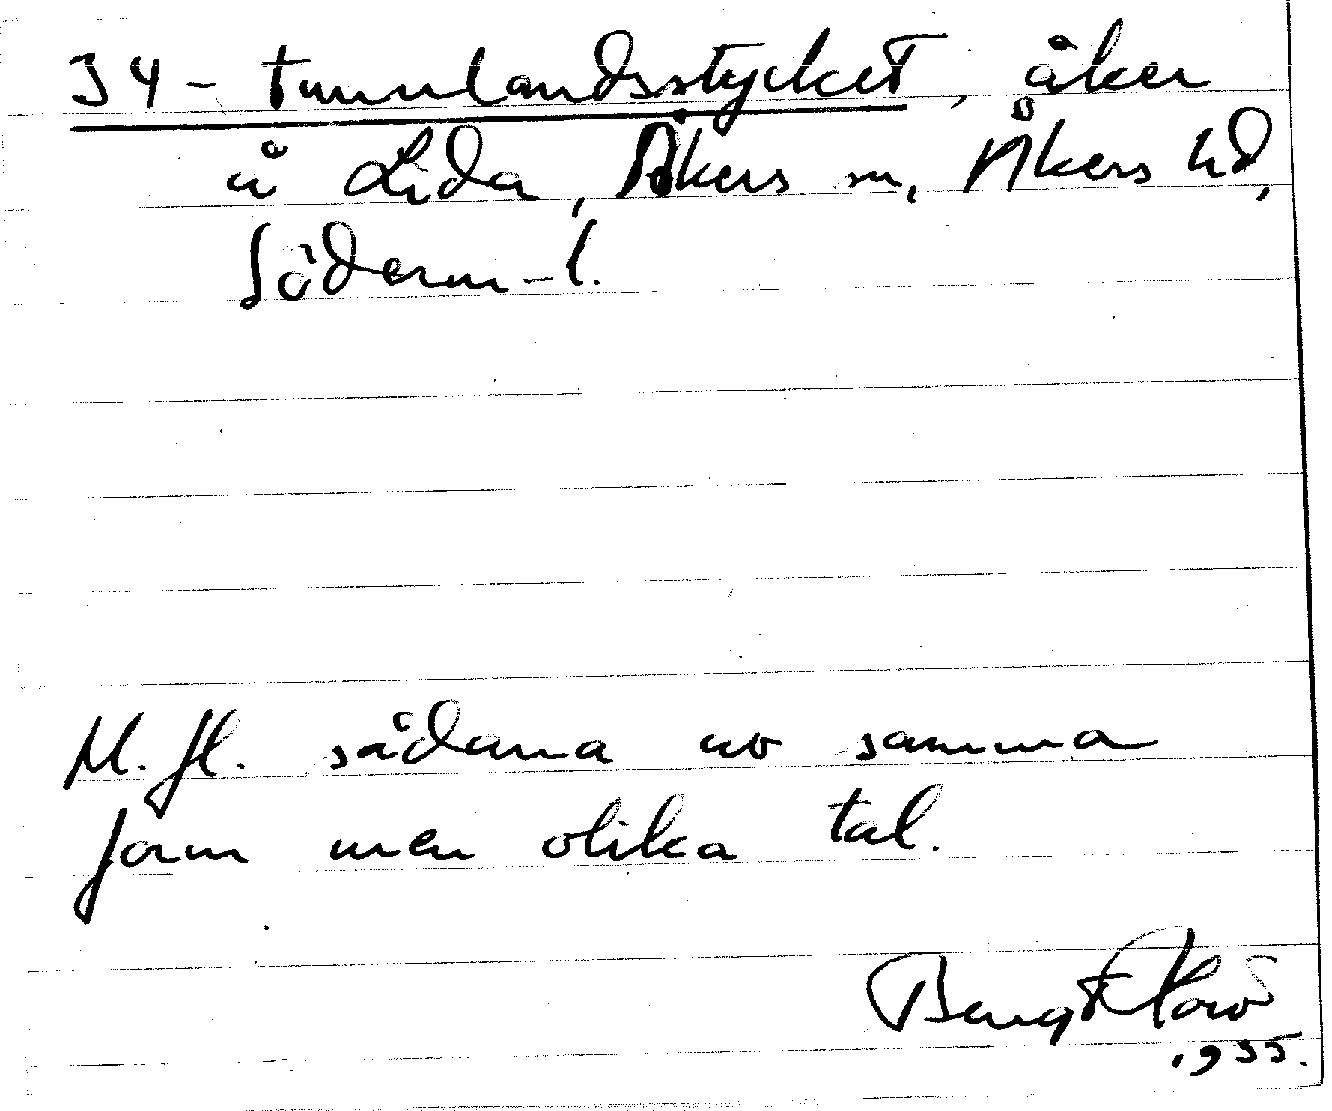 34-tunnlandsstycket, åker
å Lida, Åkers sn, Åkers hd,
Söderm-l.
M. fl. sådana av samma
form men olika tal.
Bengt
1935.